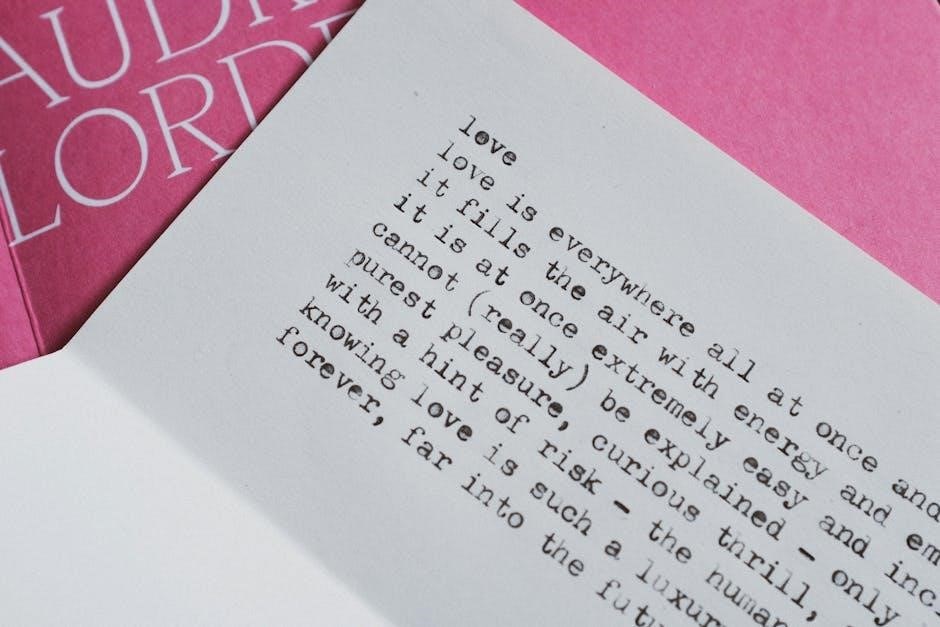 AUDR
LORD
love
love is everywhere all at once and
it fills the air with energy and em
it is at once extremely easy and inc
cannot (really) be explained – only
purest pleasure, curious thrill,
with a hint of risk – the human
knowing love is such a luxur
forever, far into the futu